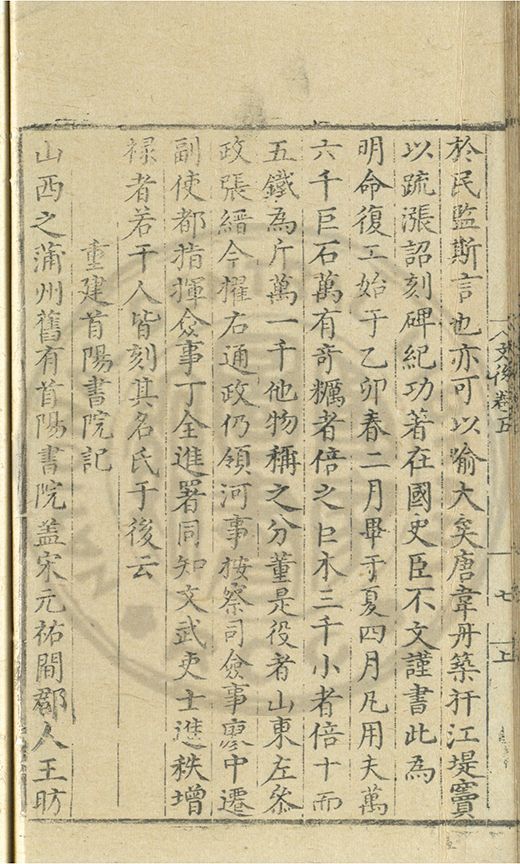 文後卷五
七
上
於民監斯言也亦可以喻大矣唐韋丹築扞江堤竇
以疏漲詔刻碑紀功著在國史臣不文謹書此為
明命復工始于乙卯春二月畢于夏四月凡用夫萬
六千巨石萬有奇糲者倍之巨木三千小者倍十而
五鐵為斤萬一千他物稱之分董是役者山東左叅
政張縉今擢右通政仍領河事按察司僉事廖中遷
副使都指揮僉事丁全進署同知文武吏士進秩增
祿者若干人皆刻其名氏于後云
重建首陽書院記
山西之蒲州舊有首陽書院盖宋元祐間郡人王昉